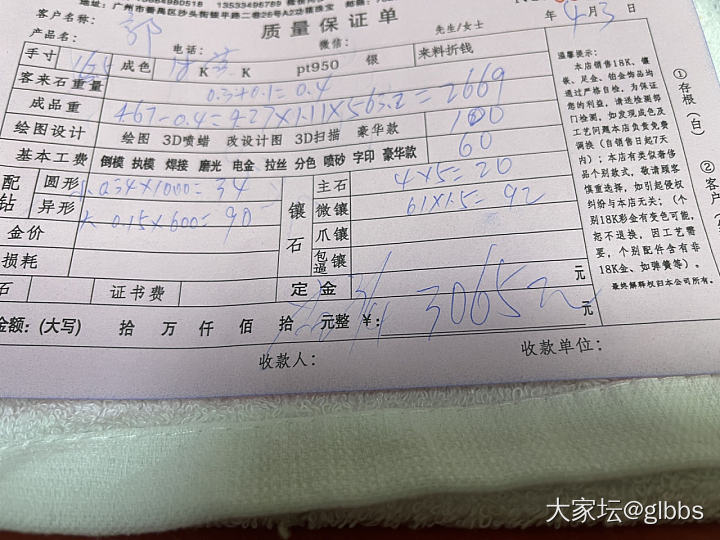 地址:广州市番禺区沙头街银平路二巷26号A2功精珠宝
№
客户名称: 郭 质量保证单 年4月3日
产品名: 电话: 微信: 先生/女士
手寸 成色 18 K K pt950 银 来料折钱
客来石重量 0.3+0.1=0.4
成品重 4.67-0.4=4.27×1.11×563.2=2669
绘图设计 绘图 3D喷蜡 改设计图 3D扫描 豪华款 100
基本工费 倒模 执模 焊接 磨光 电金 拉丝 分色 喷砂 字印 豪华款 60
配钻 圆形 0.034×1000=34 镶石 主石 4×5=20
异形 0.15×600=90 微镶 61×1.5=92
金价 爪镶
损耗 包逼镶
石 证书费 定金 元
金额:(大写) 拾 万 仟 佰 拾 元整 ¥: 3065 元
收款人: 收款单位:
温馨提示:
本店销售18K、镶
嵌、足金、铂金饰品均
通过严格自检,为保证
您的利益,请送检测部
门检测,如发现成色及
工艺问题本店负责免费
调换(自销售日起7天
内);本店有类似奢侈
品个别款式,敬请顾客
慎重选择,如引起侵权
纠纷与本店无关;(个
别18K彩金有变色可能,
恕不退换,因工艺需
要,个别配件含有非
18K金、如弹簧等)。
最终解释权归本公司所有。
①存根(白)
②客户
大家坛@glbbs